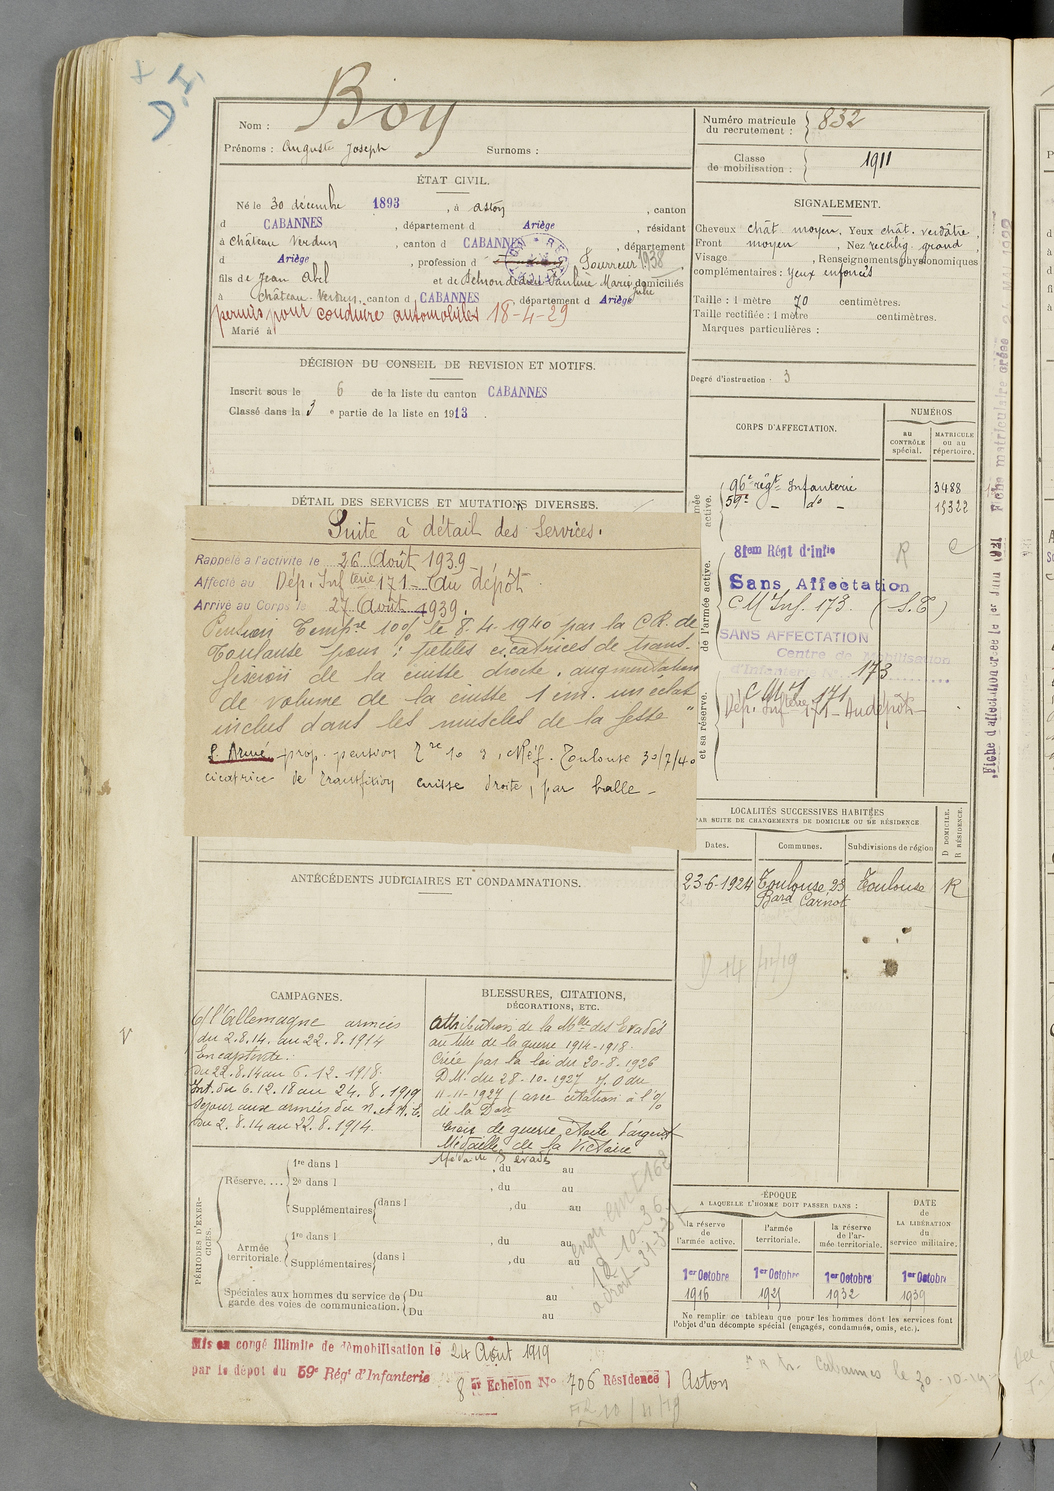 Boy
Nom :
Prénoms : Auguste Joseph Surnoms :
Numéro matricule du recrutement : 832
Classe de mobilisation : 1911
ÉTAT CIVIL.
Né le 30 décembre 1893, à Aston, canton
d CABANNES, département d Ariège, résidant
à Château Verdun, canton d CABANNES, département
d Ariège, profession d Fourreur 1938
fils de Jean Abel et de Pauline Marie Julie domiciliés
à Château-Verdun, canton d CABANNES département d Ariège
permis pour conduire automobiles 18-4-29
Marié à
SIGNALEMENT.
Cheveux chât moyen, Yeux chât. verdâtre,
Front moyen, Nez rectilig. grand
Visage , Renseignements physionomiques
complémentaires : Yeux enfoncés
Taille : 1 mètre 70 centimètres.
Taille rectifiée : 1 mètre centimètres.
Marques particulières :
Degré d'instruction : 3
DÉCISION DU CONSEIL DE REVISION ET MOTIFS.
Inscrit sous le 6 de la liste du canton CABANNES
Classé dans la 3 e partie de la liste en 1913.
CORPS D'AFFECTATION.
NUMÉROS
au CONTRÔLE spécial.
MATRICULE ou au répertoire.
96e régt Infanterie 3488
59e - do - 15322
81em Régt d'Infie R
Sans Affectation
C M Inf. 173. (S.E)
SANS AFFECTATION
Centre de Mobilisation
d'Infanterie 173
C M I 171
Dép. Inferie 171 - Au dépôt -
DÉTAIL DES SERVICES ET MUTATIONS DIVERSES.
Suite à détail des Services.
Rappelé à l'activité le 26 Août 1939
Affecté au Dép. Inferie 171 - Au dépôt
Arrivé au Corps le 27 Août 1939.
Pension Tempre 10% le 8.4.1940 par la C.R. de
Toulouse pour : petites cicatrices de trans-
fixion de la cuisse droite, augmentation
de volume de la cuisse 1 cm. un éclat
inclus dans les muscles de la fesse "
prop. pension Tre 10 %, Réf. Toulouse 30/7/40
cicatrice de transfixion cuisse droite, par balle -
Fiche d'affectation créée le 1er Juin 1921
Fiche matriculaire créée
LOCALITÉS SUCCESSIVES HABITÉES
PAR SUITE DE CHANGEMENTS DE DOMICILE OU DE RÉSIDENCE
Dates. Communes. Subdivisions de région D DOMICILE. R RÉSIDENCE.
23-6-1924 Toulouse 23 Bard Carnot Toulouse R
ANTÉCÉDENTS JUDICIAIRES ET CONDAMNATIONS.
CAMPAGNES.
C/ l'Allemagne armées
du 2.8.14 au 22.8.1914
En captivité :
du 22.8.14 au 6.12.1918.
Int. du 6.12.18 au 24.8.1919
Séjour aux armées du N. et N.E.
du 2.8.14 au 22.8.1914.
BLESSURES, CITATIONS,
DÉCORATIONS, ETC.
Attribution de la Mlle des Evadés
au titre de la guerre 1914-1918.
Créée par la loi du 20-8-1926
D.M. du 28-10-1927 J.O du
11-11-1927 (avec citation à l'O/
de la Don
Croix de guerre étoile d'argent
Médaille de la Victoire
Médaille d évadés
PÉRIODES D'EXERCICES.
Réserve. ... 1re dans l , du au
2e dans l , du au
Supplémentaires dans l , du au
Armée territoriale. 1re dans l , du au
Supplémentaires dans l , du au
Spéciales aux hommes du service de garde des voies de communication. Du au
Du au
ÉPOQUE
A LAQUELLE L'HOMME DOIT PASSER DANS :
la réserve de l'armée active. l'armée territoriale. la réserve de l'armée territoriale.
DATE de LA LIBÉRATION du service militaire.
1er Octobre 1916 1er Octobre 1921 1er Octobre 1932 1er Octobre 1939
Ne remplir ce tableau que pour les hommes dont les services font l'objet d'un décompte spécial (engagés, condamnés, omis, etc.).
Mis en congé illimité de démobilisation le 24 Août 1919
par le dépôt du 59e Régt d'Infanterie
8 er Echelon No 706 Résidence] Aston
Cabannes le 30-10-19